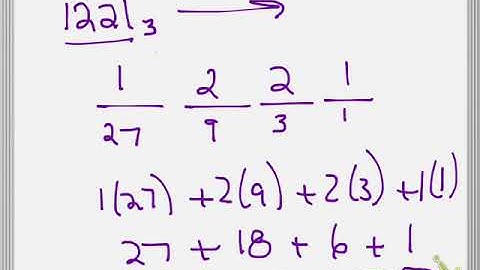 1221₃ →
1 2 2 1
27 9 3 1
1(27) + 2(9) + 2(3) + 1(1)
27 + 18 + 6 + 1